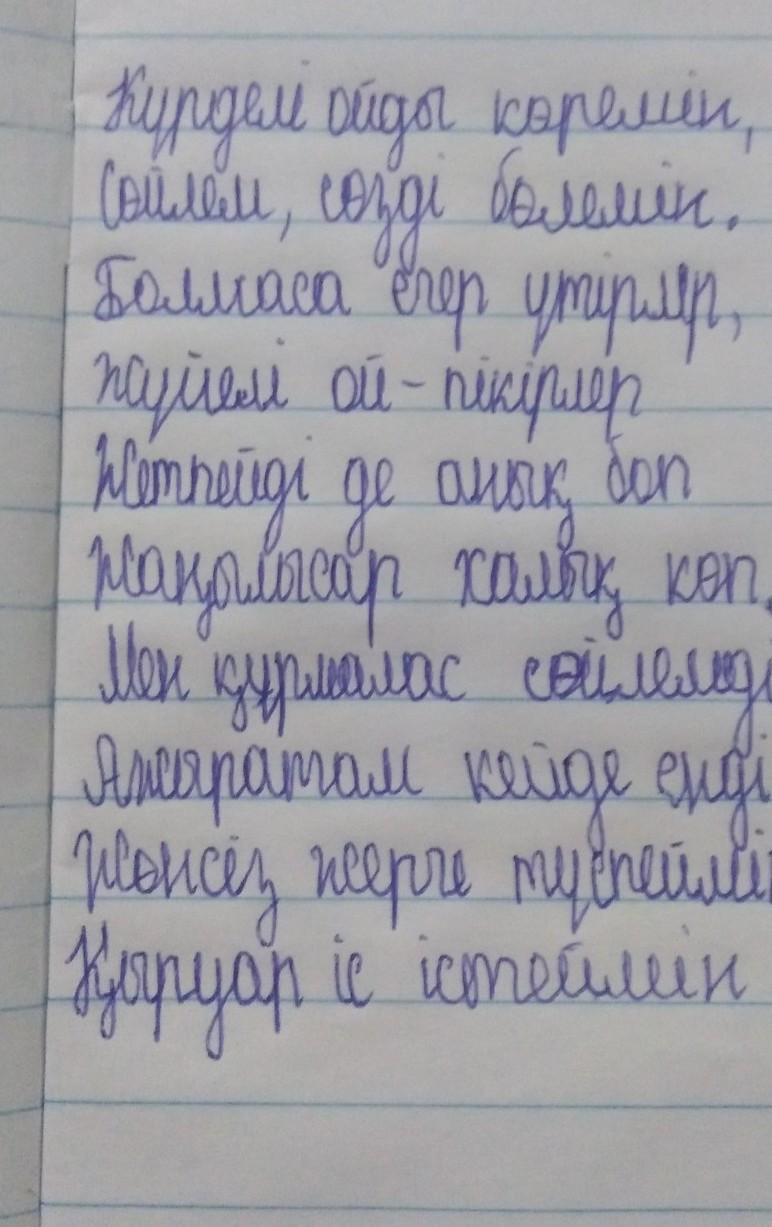 Күрделі ойды көремін,
Сөйлем, сөзді бөлемін.
Болмаса егер үтірлер,
жүйелі ой-пікірлер
Жетпейді де анық боп
Жаңылысар халық көп.
Мен құрмалас сөйлемді
Ажыратам кейде енді
Жөнсіз жерге түспеймі
Қыруар іс істеймін